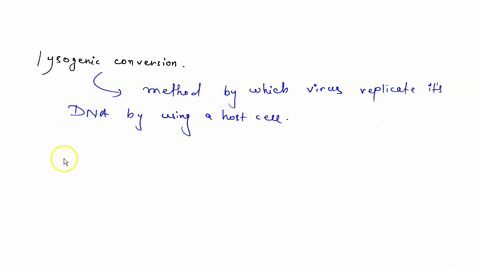 lysogenic conversion.
method by which virus replicate it's
DNA by using a host cell.